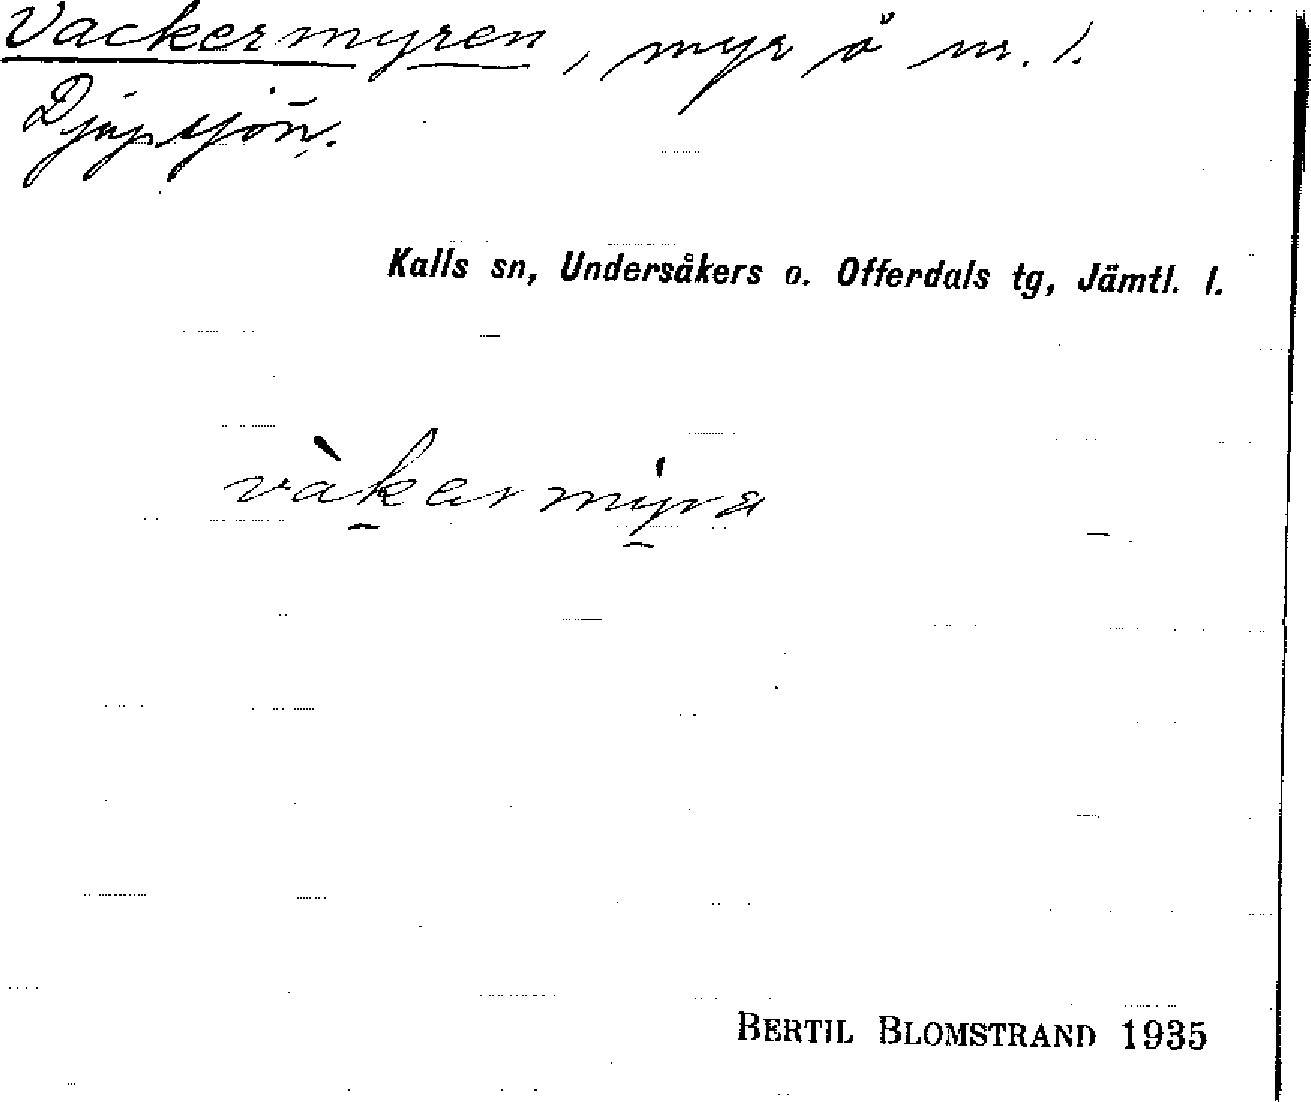 Vackermyren, myr å nr. 1.
Djupsjön.
Kalls sn, Undersåkers o. Offerdals tg, Jämtl. l.
vàkermýra
BERTIL BLOMSTRAND 1935